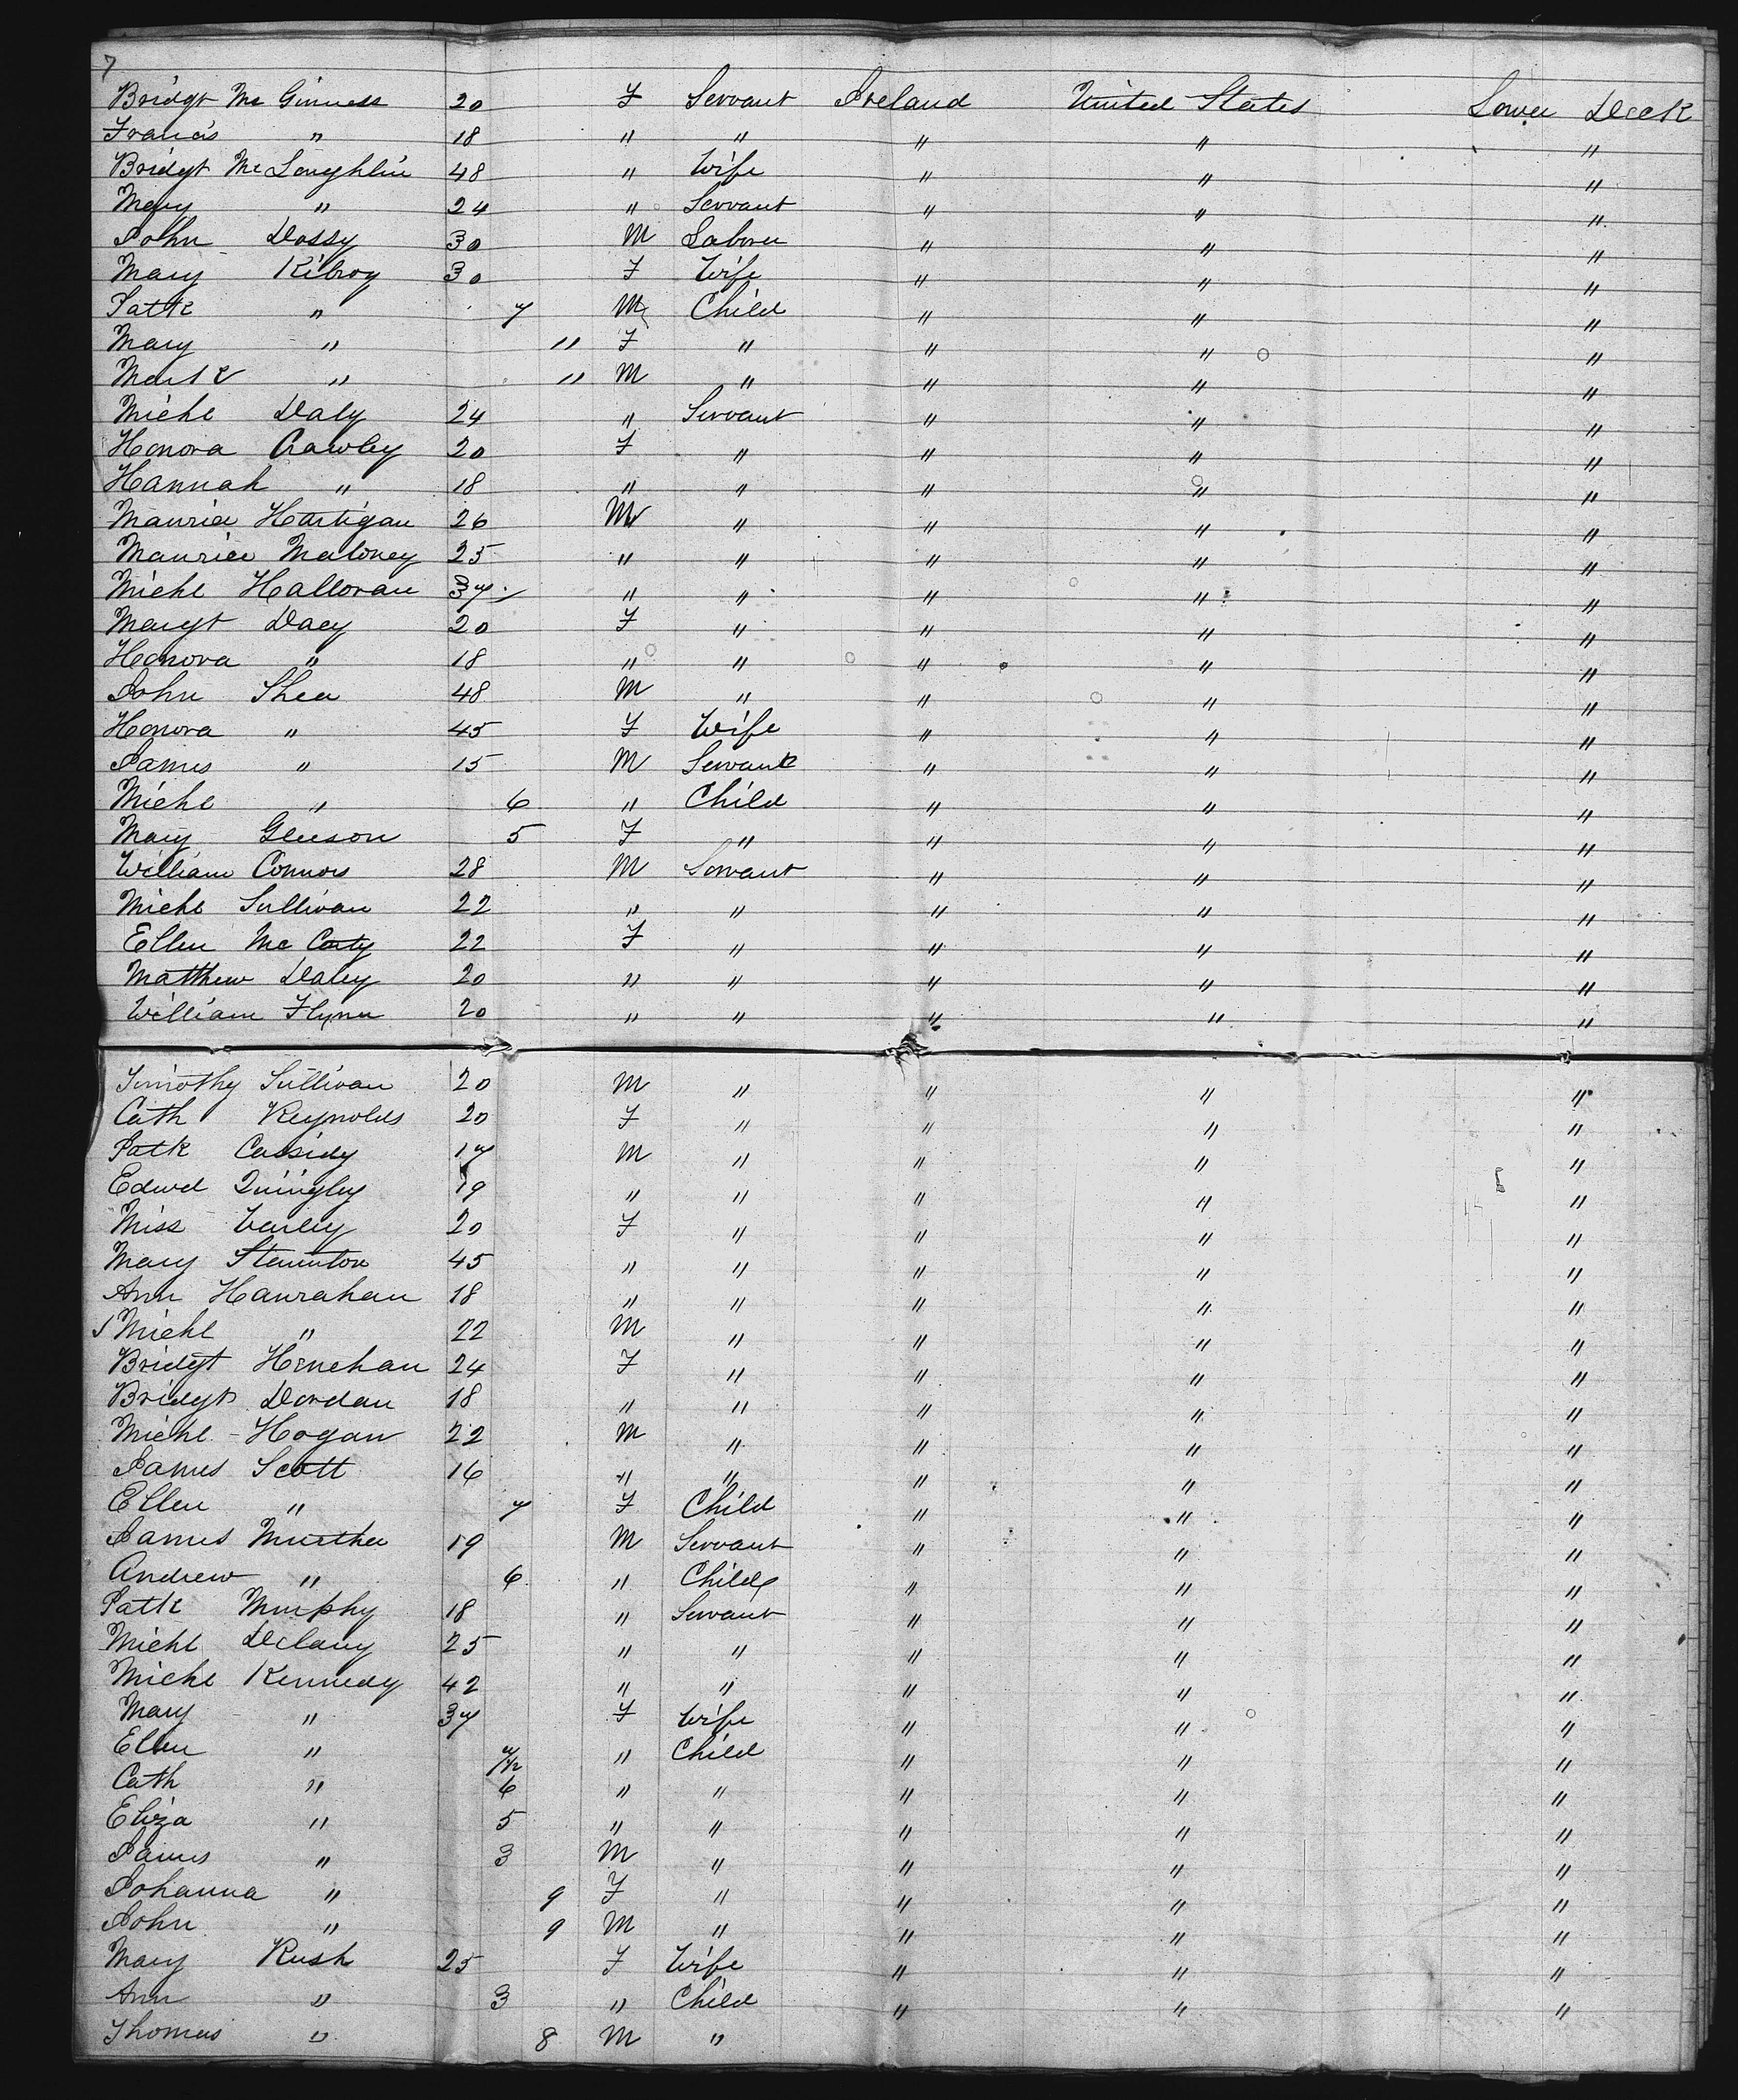 7
Bridgt Mc Ginness 20 F Servant Ireland United States Lower Deck
Francis " 18 " " " " "
Bridgt McLoughlin 48 " Wife " " "
Mary " 24 " Servant " " "
John Dossy 30 M Laborer " " "
Mary Kilroy 30 F Wife " " "
Patk " 7 M Child " " "
Mary " 11 F " " " "
Mark " 11 M " " " "
Michl Daly 24 " Servant " " "
Honora Crawley 20 F " " " "
Hannah " 18 " " " " "
Maurice Hartigan 26 M " " " "
Maurice Maloney 25 " " " " "
Michl Halloran 37 " " " " "
Margt Dacy 20 F " " " "
Honora " 18 " " " " "
John Shea 48 M " " " "
Honora " 45 F Wife " " "
James " 15 M Servant " " "
Michl " 6 " Child " " "
Mary Gleeson 5 F " " " "
William Connors 28 M Servant " " "
Michl Sullivan 22 " " " " "
Ellen Mc Carty 22 F " " " "
Matthew Daley 20 " " " " "
William Flynn 20 " " " " "
Timothy Sullivan 20 M " " " "
Cath Reynolds 20 F " " " "
Patk Cassidy 17 M " " " "
Edwd Quingley 19 " " " " "
Miss Varley 20 F " " " "
Mary Staunton 45 " " " " "
Ann Hanrahan 18 " " " " "
Michl " 22 M " " " "
Bridgt Henehan 24 F " " " "
Bridgt Dordan 18 " " " " "
Michl Hogan 22 M " " " "
James Scott 16 " " " " "
Ellen " 7 F Child " " "
James Murtha 19 M Servant " " "
Andrew " 6 " Child " " "
Patk Murphy 18 " Servant " " "
Michl Delany 25 " " " " "
Michl Kennedy 42 " " " " "
Mary " 37 F Wife " " "
Ellen " 7½ " Child " " "
Cath " 6 " " " " "
Eliza " 5 " " " " "
James " 3 M " " " "
Johanna " 9 F " " " "
John " 9 M " " " "
Mary Rush 25 F Wife " " "
Ann " 3 " Child " " "
Thomas " 8 M "